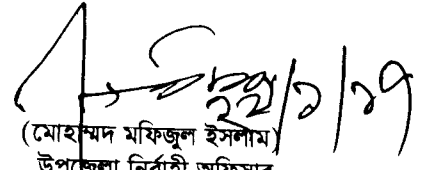 ২২/১/১৭
(মোহাম্মদ মফিজুল ইসলাম)
উপজেলা নির্বাহী অফিসার